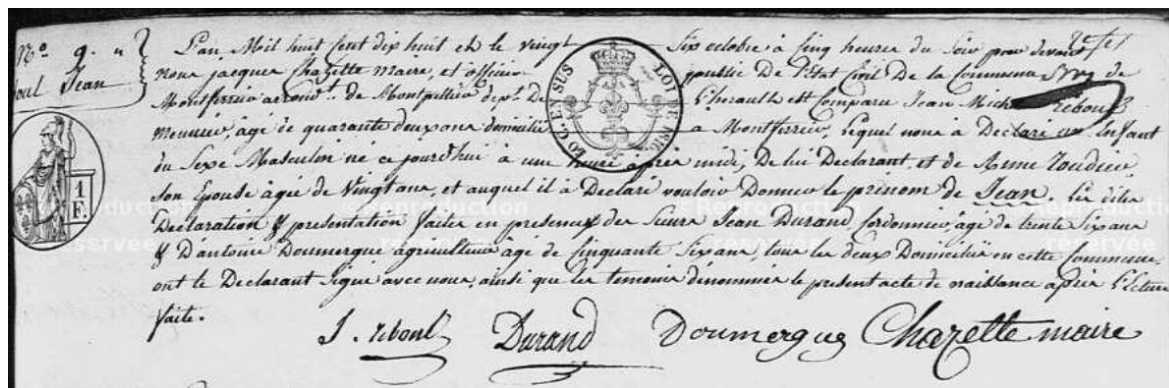 N.° 9. "
Reboul Jean
L'an Mil huit Cent dix huit et le vingt Six octobre à Cinq heures du Soir par devant
nous jacques Chazette maire, et officier public De l'Etat Civil De la Commune de
Montferrier arrond.t de Montpellier dep.t De L'herault est Comparu Jean Michel reboul
meunier, âgé de quarante deux ans domicilié à Montferrier, lequel nous à Declaré un Enfant
du Sexe Masculin né ce jourd'hui à une heure après midi, De lui Declarant et de Anne
Son Epouse âgée de Vingt ans, et auquel il à Declaré vouloir Donner le prénom de Jean, Les dites
Declaration & presentation faites en presence des Sieurs Jean Durand, Cordonnier, âgé de trente Six ans
& D'antoine Doumergue agriculteur âgé de Cinquante Six ans, tous les deux Domiciliés en cette Commune.
ont le Declarant Signé avec nous, ainsi que les temoins dénommés le present acte de naissance après Lecture
faite.
J. reboul Durand Doumergue Chazette maire
LOUIS
1
F.
©Reproduction
réservée